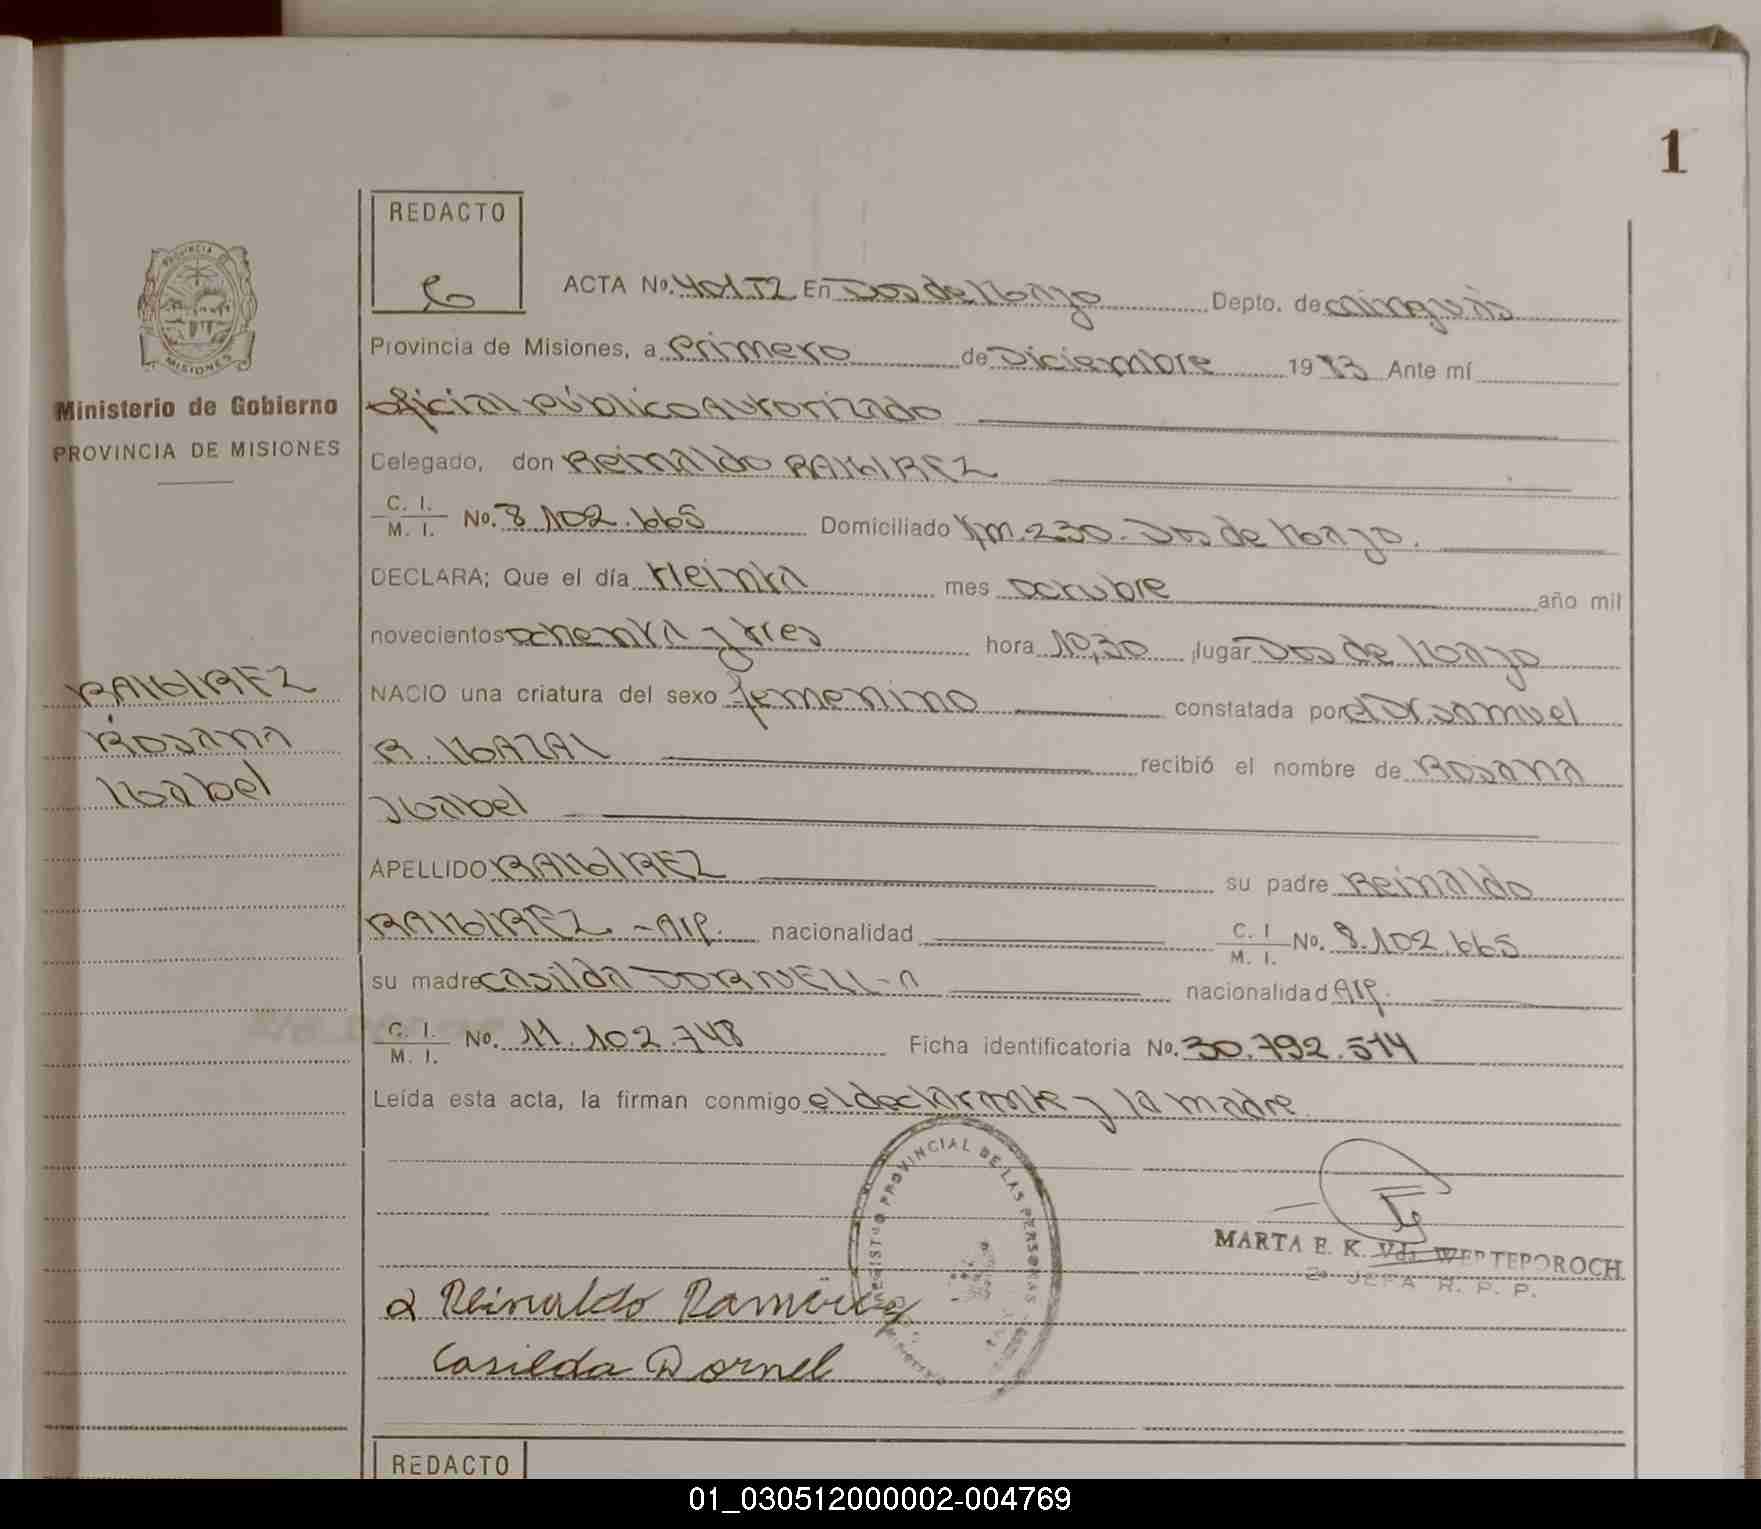 1
REDACTO
ACTA No. 401 T2 En Dos de Mayo Depto. de Cainguás
PROVINCIA DE
MISIONES
Provincia de Misiones, a Primero de Diciembre 1983 Ante mí
Ministerio de Gobierno
PROVINCIA DE MISIONES
oficial público Autorizado
Celegado, don Reinaldo RAMIREZ
C. I.
M. I. No. 8.102.665 Domiciliado Km. 230. Dos de Mayo.
DECLARA; Que el día treinta mes octubre año mil
novecientos ochenta y tres hora 10,30 lugar Dos de Mayo
RAMIREZ
Rosana
Mabel
NACIO una criatura del sexo femenino constatada por el Dr. Samuel
R. MAZAL recibió el nombre de Rosana
Mabel
APELLIDO RAMIREZ su padre Reinaldo
RAMIREZ - Arg. nacionalidad C. I.
M. I. No. 8.102.665
su madre Casilda DORNELL-A nacionalidad Arg.
C. I.
M. I. No. 11.102.748 Ficha identificatoria No. 30.792.514
Leída esta acta, la firman conmigo el declarante y la madre
REGISTRO PROVINCIAL DE LAS PERSONAS
MARTA E. K. Vda. WERTEPOROCH
2a JEFA R. P. P.
Reinaldo Ramirez
Casilda Dornel
REDACTO
01_030512000002-004769